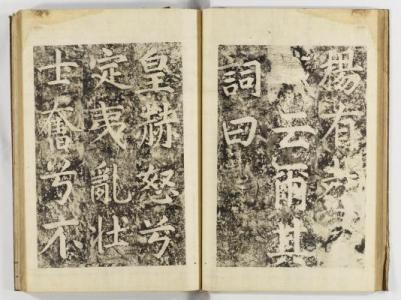 有
云爾其
詞曰
皇赫怒兮
定夷亂壯
士奮兮不